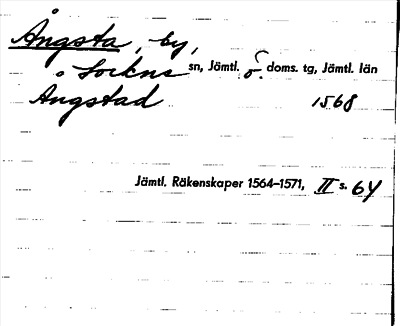 Ångsta, by,
Lockne sn, Jämtl. ö. doms. tg, Jämtl. län
Ångstad 1568
Jämtl. Räkenskaper 1564–1571, II s. 64